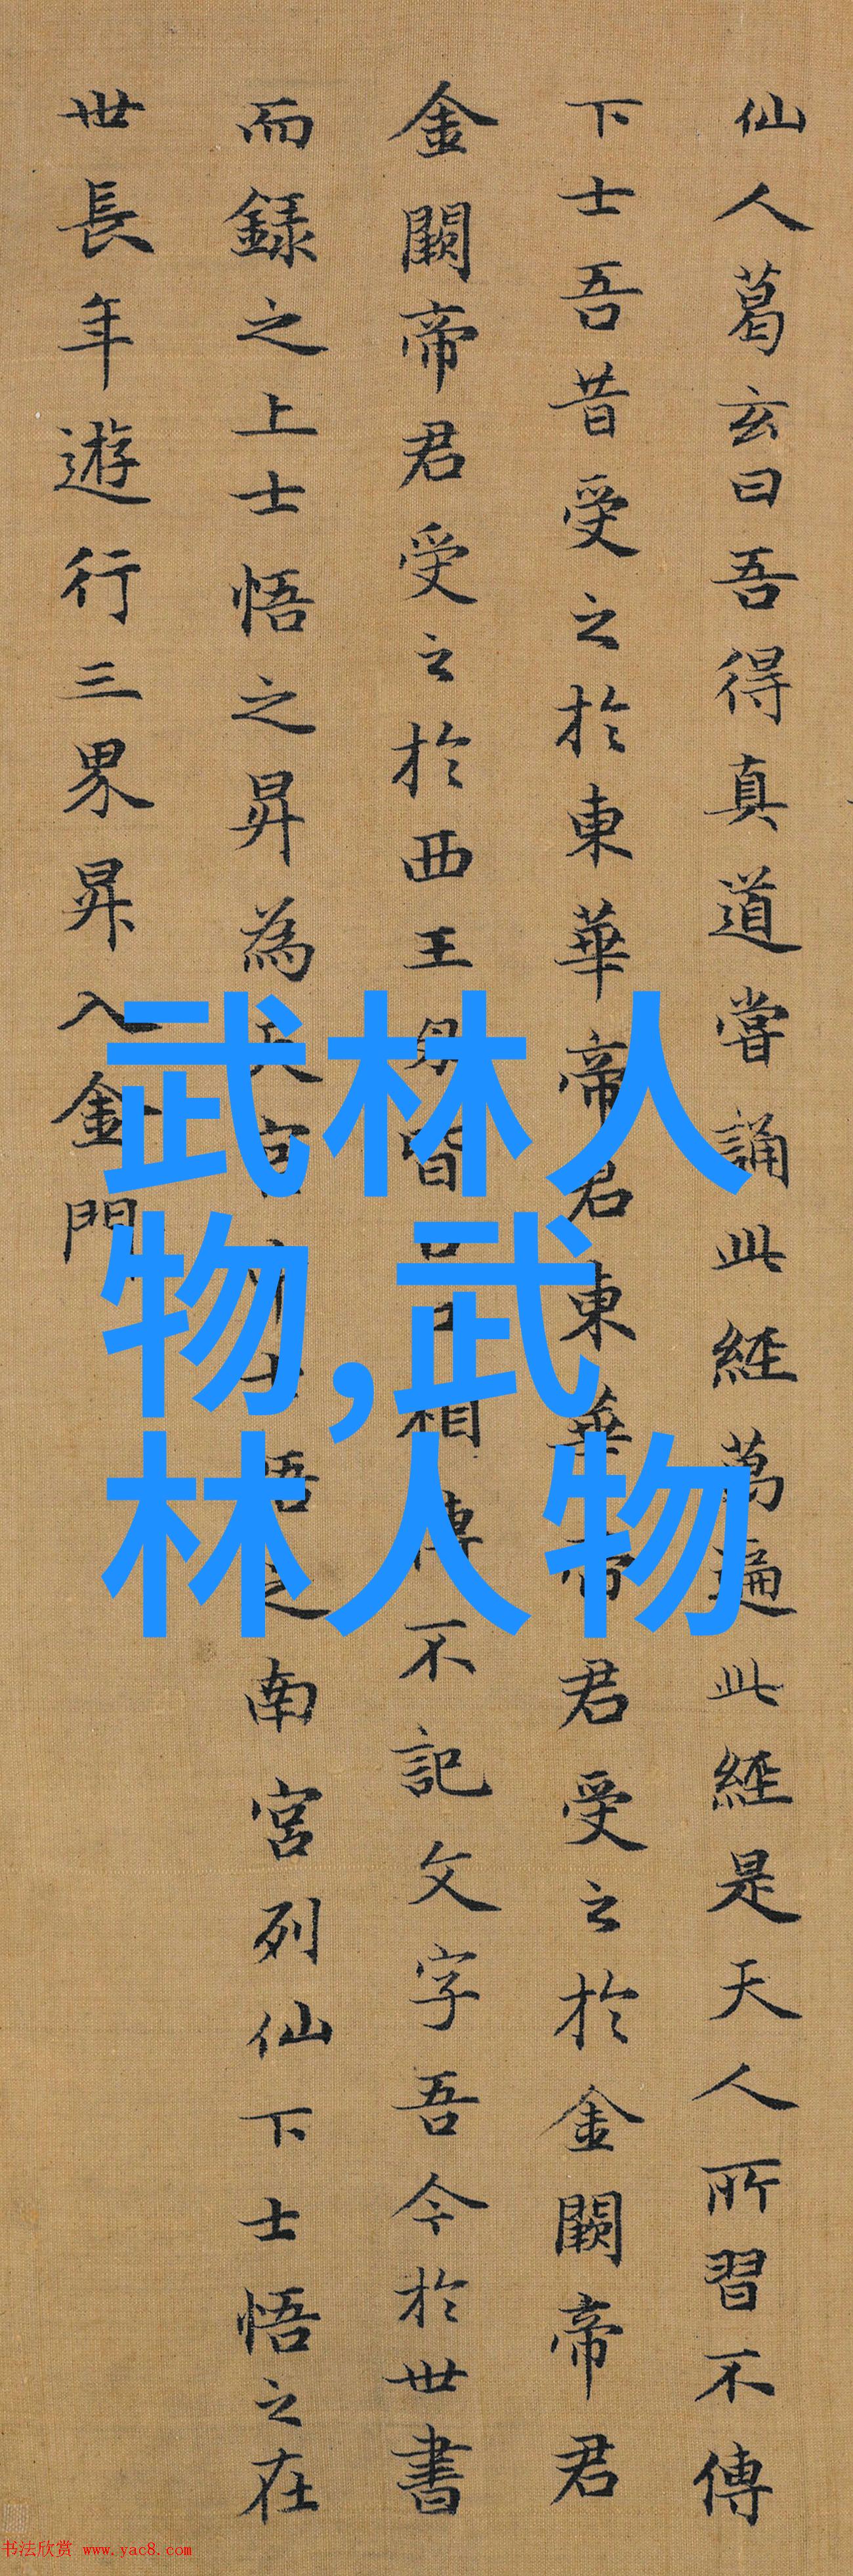 仙人葛玄曰吾得真道嘗誦此經萬遍此經是天人所習不傳
下士吾昔受之於東華帝君東華帝君受之於金闕帝君
金闕帝君受之於西王母皆口口相傳不記文字吾今於世書
而録之上士悟之昇為天官中士悟之南宮列仙下士悟之在
世長年遊行三界昇入金門
武林人
物,武
林人物
书法欣赏 www.yac8.com